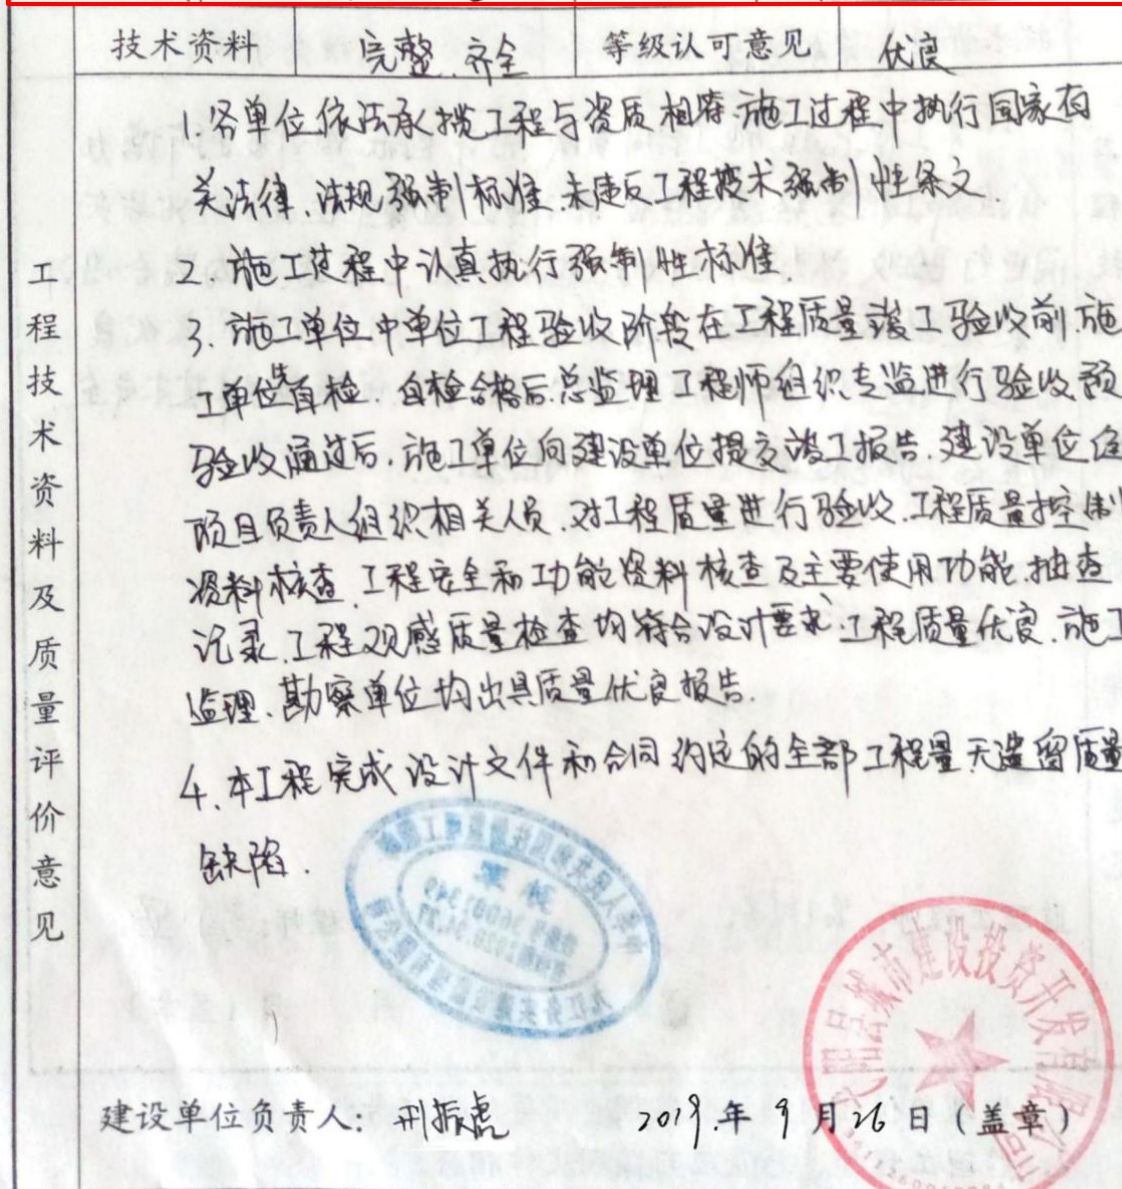 技术资料 完整.齐全 等级认可意见 优良
工程技术资料及质量评价意见
1.各单位依法承揽工程与资质相符.施工过程中执行国家有
关法律.法规.强制标准.未违反工程技术强制性条文
2.施工过程中认真执行强制性标准.
3.施工单位中单位工程验收阶段在工程质量竣工验收前施
工单位皆自检.自检合格后.总监理工程师组织专监进行验收.预
验收通过后.施工单位向建设单位提交竣工报告.建设单位
项目负责人组织相关人员.对工程质量进行验收.工程质量控制
资料核查.工程安全和功能资料核查及主要使用功能.抽查
记录.工程观感质量检查均符合设计要求.工程质量优良.施工
监理.勘察单位均出具质量优良报告.
4.本工程完成设计文件和合同约定的全部工程量.无遗留质量
缺陷.
城市建设投资开发有限公司
建设单位负责人: 刑振虎 2019.年 9 月 26 日 (盖章)